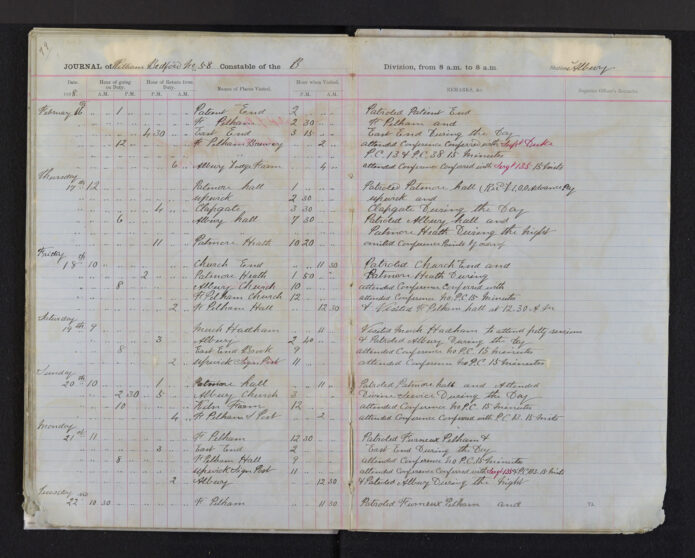 79
JOURNAL of William Bedford No. 58 Constable of the B Division, from 8 a.m. to 8 a.m. Station Albury
Date. Hour of going on Duty. Hour of Return from Duty. Names of Places Visited. Hour when Visited. REMARKS, &c. Superior Officer's Remarks.
A.M. P.M. A.M. P.M. A.M. P.M.
February 16 1 Patient End 2 Patroled Patient End
F Pelham 2 30 F Pelham and
4 30 East End 3 15 East End During the Day
12 F Pelham Brewery 2 attended Conference Conferred with Supt Duke
P.C. 13 & P.C. 38 15 minutes
6 Albury Lodge Farm 4 attended Conference Conferred with 15 Minits
Thursday
17th 12 Patmore hall 1 Patroled Patmore hall Pay
upwick 2 30 upwick and
4 Clapgate 3 30 Clapgate During the Day
6 Albury hall 7 30 Patroled Albury hall and
Patmore Heath During the Night
11 Patmore Heath 10 20 omited Conference Points by
Friday
18th 10 Church End 11 30 Patroled Church End and
2 Patmore Heath 1 50 Patmore Heath During
8 Albury Church 10 attended Conference Conferred with
F Pelham Church 12 attended Conference no P.C. 15 Minutes
2 F Pelham Hall 12 30 & Visited F Pelham hall at 12.30 A m
Saturday
19th 9 Much Hadham 11 Visited Much Hadham to attend petty sessions
3 Albury 2 40 & Patroled Albury During the Day
8 East End 9 attended Conference no P.C. 15 minutes
2 upwick Sign Post 11 attended Conference no P.C. 15 minutes
Sunday
20th 10 1 Patmore hall 11 Patroled Patmore hall and Attended
2 30 5 Albury Church 3 Divine Service During the Day
10 Kiln Farm 12 attended Conference no P.C. 15 minutes
4 F Pelham S Post 2 attended Conference Conferred with P.C. 13. 15 Minits
Monday
21st 11 F Pelham 12 30 Patroled Furneux Pelham &
3 East End 2 East End During the Day
8 F Pelham Hall 9 attended Conference no P.C. 15 minutes
upwick Sign Post 11 attended Conference Conferred with 15 Minits
2 Albury 12 30 & Patroled Albury During the Night
Tuesday
22nd 10 30 F Pelham 11 30 Patroled Furneux Pelham and